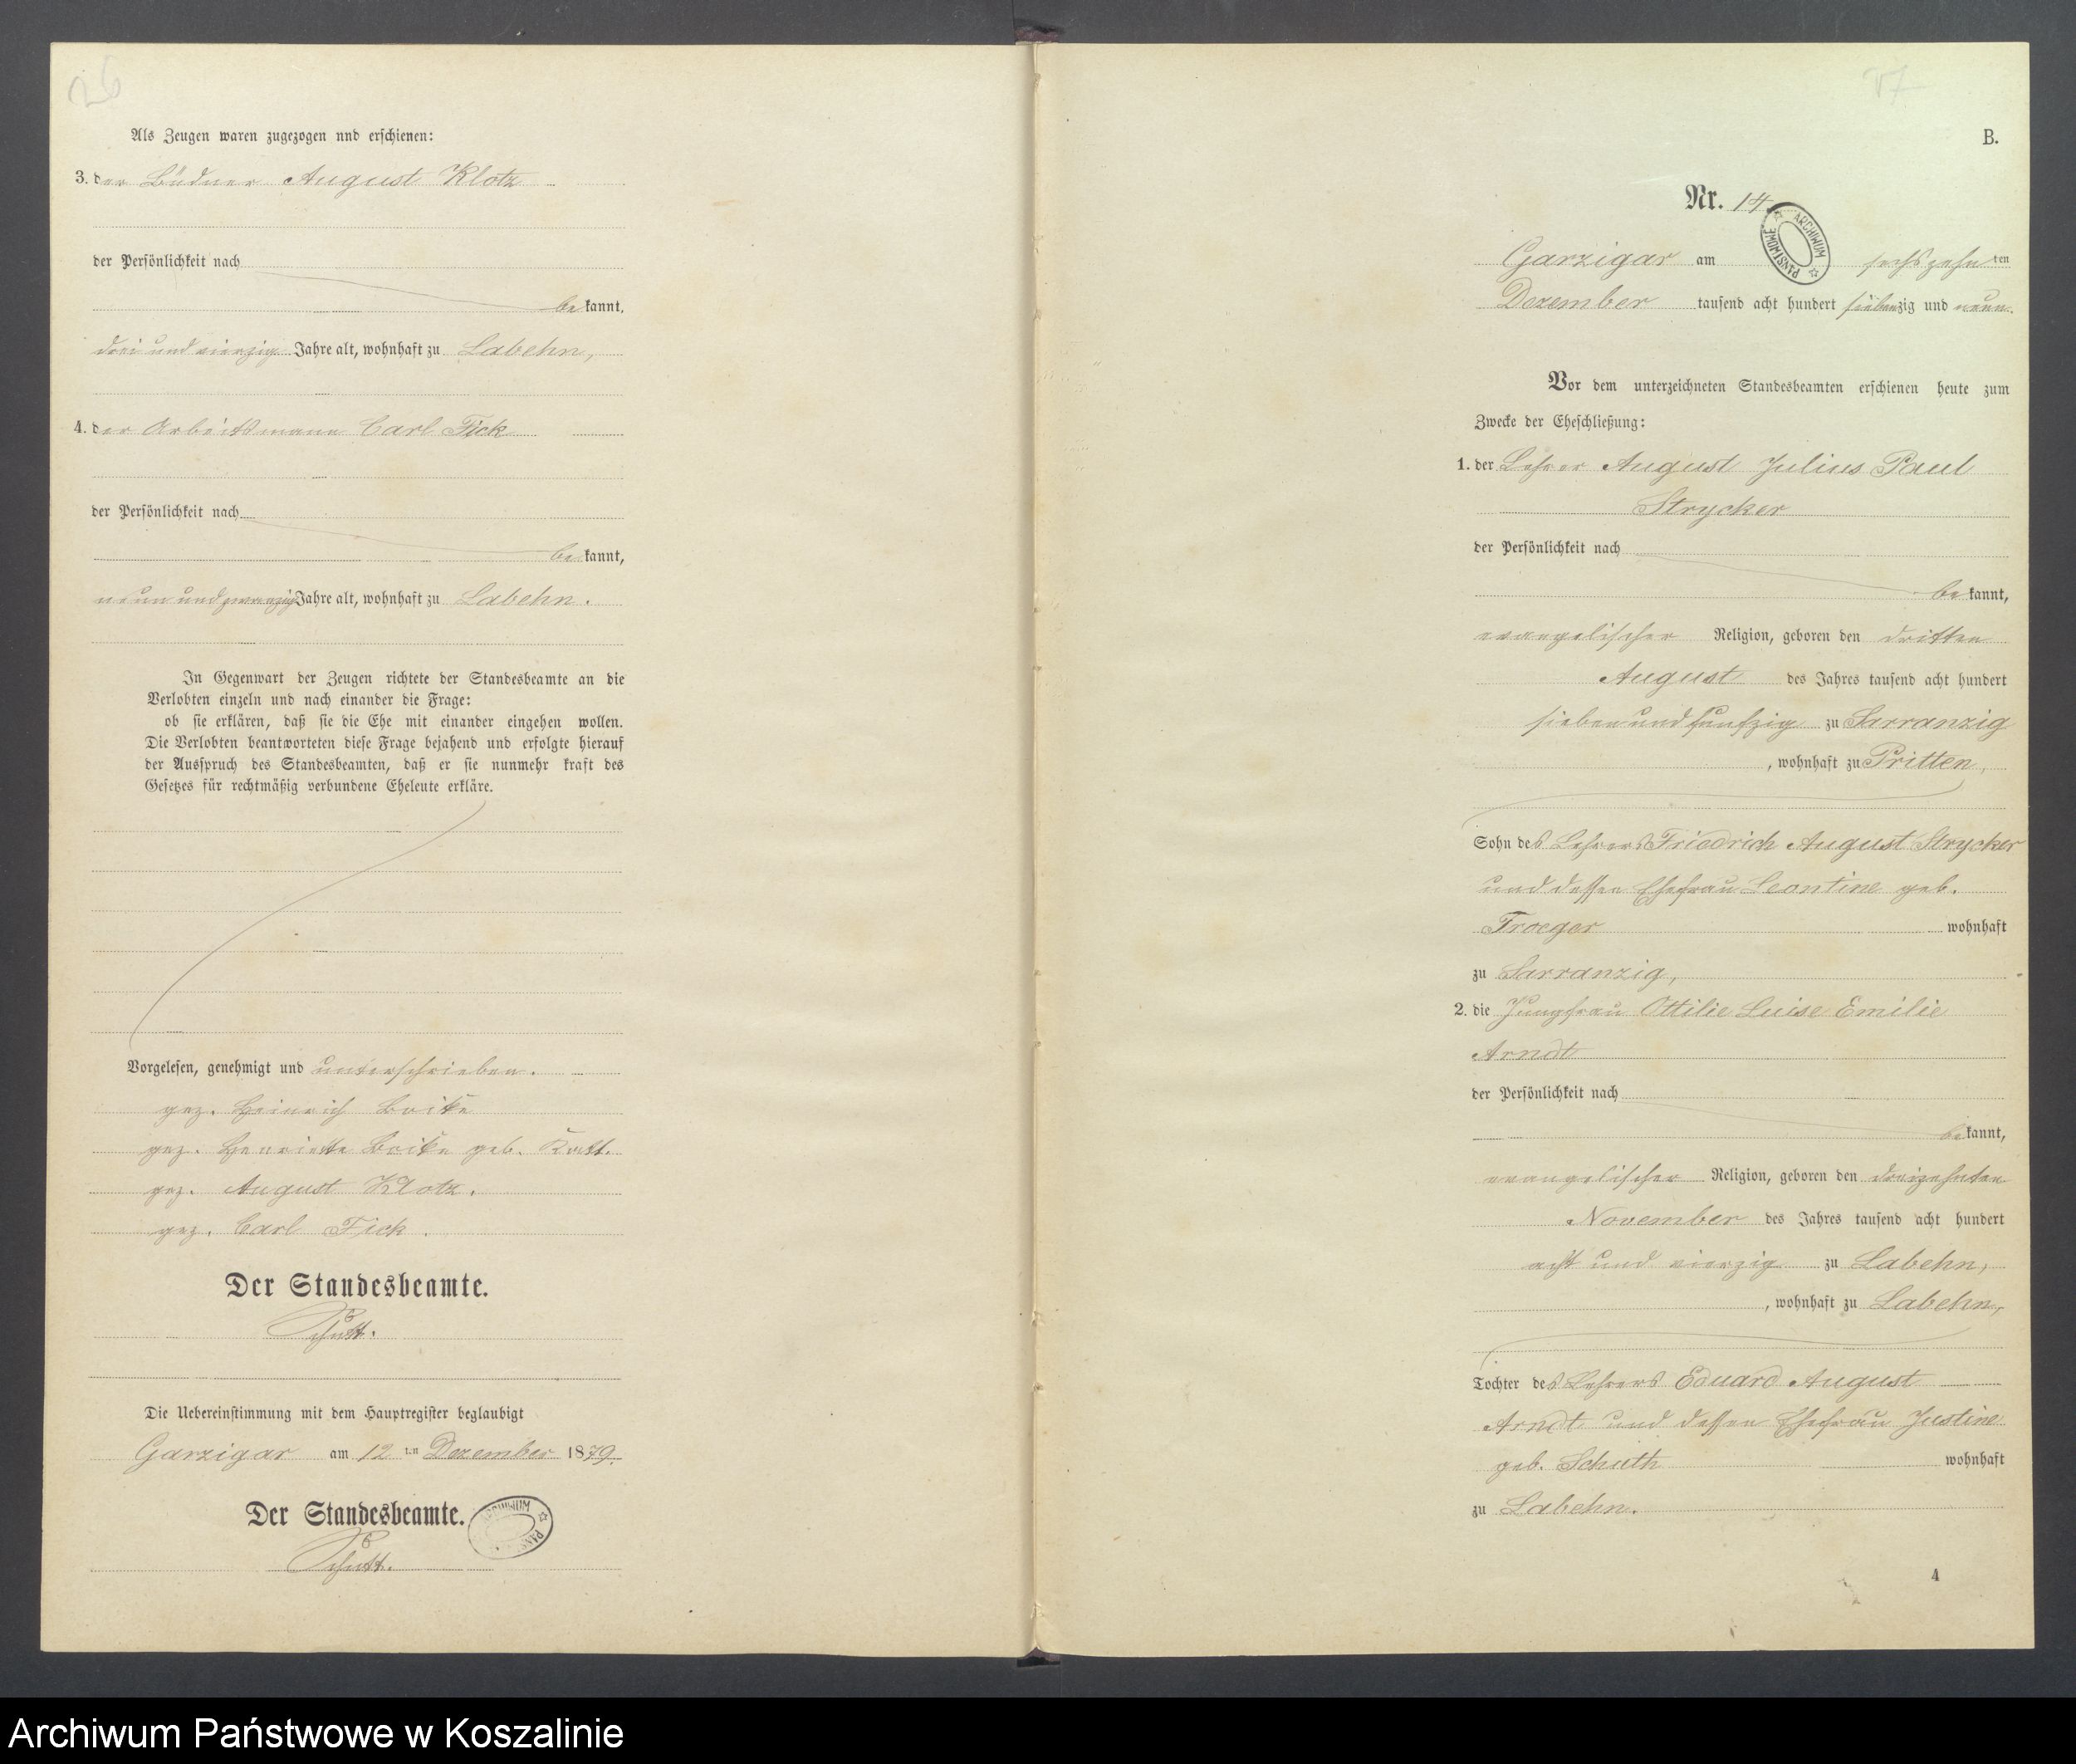 26
Als Zeugen waren zugezogen nnd erschienen:
3. der Büdner August Klotz
der Persönlichkeit nach
bekannt,
drei und vierzig Jahre alt, wohnhaft zu Labehn,
4. der Arbeitsmann Carl Fick
der Persönlichkeit nach
bekannt,
neun und zwanzig Jahre alt, wohnhaft zu Labehn.
In Gegenwart der Zeugen richtete der Standesbeamte an die
Verlobten einzeln und nach einander die Frage:
ob sie erklären, daß sie die Ehe mit einander eingehen wollen.
Die Verlobten beantworteten diese Frage bejahend und erfolgte hierauf
der Ausspruch des Standesbeamten, daß er sie nunmehr kraft des
Gesetzes für rechtmäßig verbundene Eheleute erkläre.
Vorgelesen, genehmigt und unterschrieben.
gez. Heinrich
gez. Henriette geb.
gez. August Klotz.
gez. Carl Fick.
Der Standesbeamte.
Schutt.
Die Uebereinstimmung mit dem Hauptregister beglaubigt
Garzigar am 12 ten Dezember 1879.
Der Standesbeamte.
Schutt.
B.
Nr. 14.
ARCHIWUM PAŃSTWOWE
Garzigar am sechszehnten
Dezember tausend acht hundert siebenzig und neun.
Vor dem unterzeichneten Standesbeamten erschienen heute zum
Zwecke der Eheschließung:
1. der Lehrer August Julius Paul
Strycker
der Persönlichkeit nach
bekannt,
evangelischer Religion, geboren den dritten
August des Jahres tausend acht hundert
sieben und fünfzig zu Sarranzig
, wohnhaft zu Pritten,
Sohn des Lehrers Friedrich August Strycker
und dessen Ehefrau Leontine geb.
Troeger wohnhaft
zu Sarranzig,
2. die Jungfrau Ottilie Luise Emilie
Arndt
der Persönlichkeit nach
bekannt,
evangelischer Religion, geboren den dreizehnten
November des Jahres tausend acht hundert
acht und vierzig zu Labehn,
, wohnhaft zu Labehn,
Tochter des Lehrers Eduard August
Arndt und dessen Ehefrau Justine
geb. Schuth wohnhaft
zu Labehn.
4
Archiwum Państwowe w Koszalinie